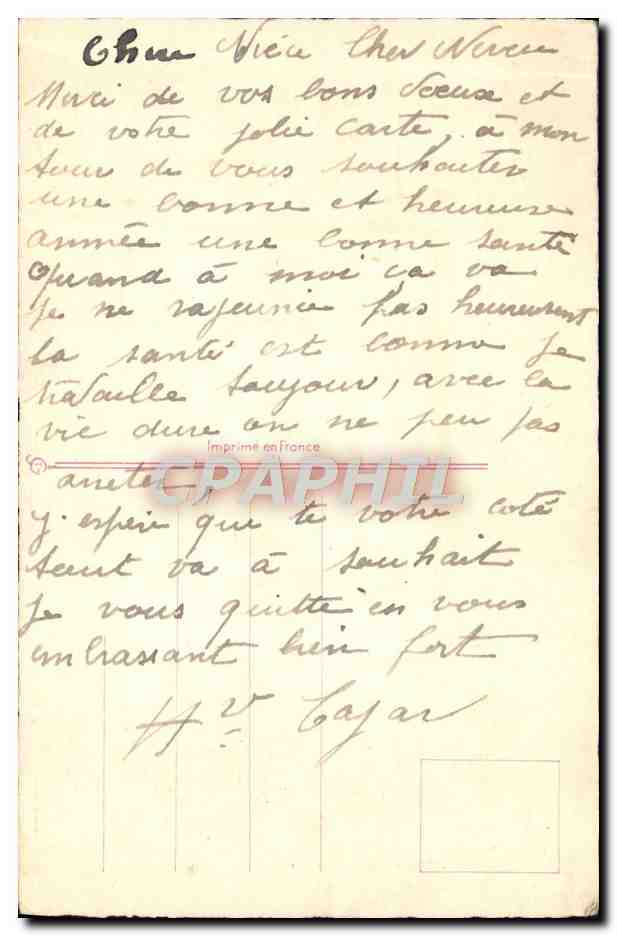 Chère Nièce Cher Neveu
Merci de vos bons Voeux et
de votre jolie carte, à mon
tour de vous souhaiter
une bonne et heureuse
année une bonne santé
Quand à moi ça va
je ne rajeunie pas heureusent
la santé est bonne je
travaille toujour, avec la
vie dure on ne peu pas
Imprimé en France
arreter,
CPAPHIL
j. espère que te votre coté
tout va à souhait
je vous quitte en vous
embrassant bien fort